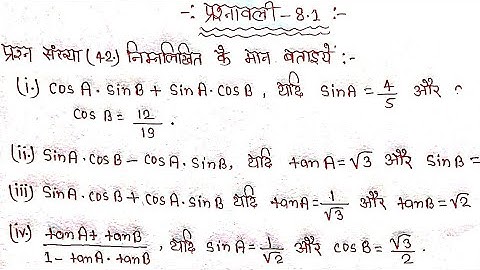 -: प्रश्नावली - 8.1 :-
प्रश्न संख्या (42) निम्नलिखित के मान बताइयें :-
(i.) cosA · sinB + sinA · cosB, यदि sinA = 4/5 और
cosB = 12/19 .
(ii.) sinA · cosB - cosA · sinB, यदि tanA = √3 और sinB =
(iii) sinA · cosB + cosA · sinB यदि tanA = 1/√3 और tanB = √2
(iv.) tanA + tanB / 1 - tanA · tanB , यदि sinA = 1/√2 और cosB = √3/2 .